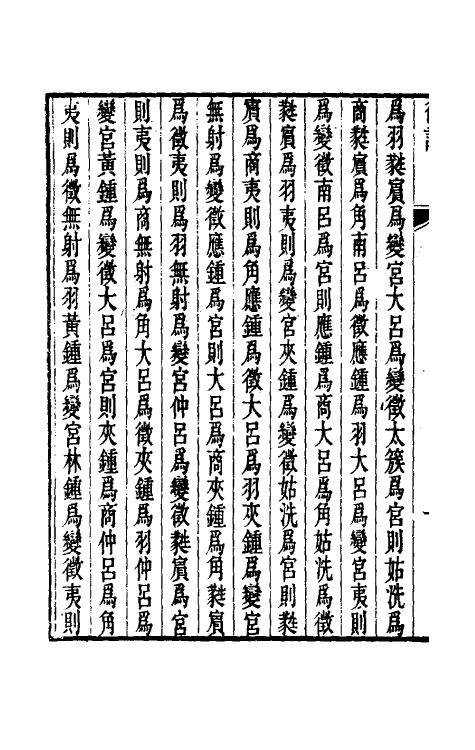 爲羽蕤賓爲變宮大呂爲變徵太簇爲宮則姑洗爲
商蕤賓爲角南呂爲徵應鍾爲羽大呂爲變宮夷則
爲變徵南呂爲宮則應鍾爲商大呂爲角姑洗爲徵
蕤賓爲羽夷則爲變宮夾鍾爲變徵姑洗爲宮則蕤
賓爲商夷則爲角應鍾爲徵大呂爲羽夾鍾爲變宮
無射爲變徵應鍾爲宮則大呂爲商夾鍾爲角蕤賓
爲徵夷則爲羽無射爲變宮仲呂爲變徵蕤賓爲宮
則夷則爲商無射爲角大呂爲徵夾鍾爲羽仲呂爲
變宮黃鍾爲變徵大呂爲宮則夾鍾爲商仲呂爲角
夷則爲徵無射爲羽黃鍾爲變宮林鍾爲變徵夷則